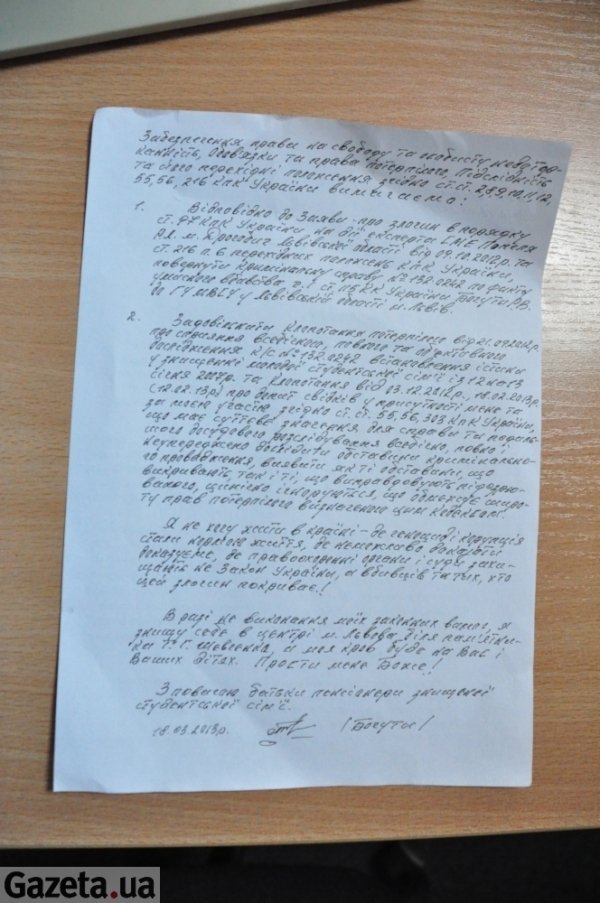 Забезпечення права на свободу та особисту недотор-
канність, Обов'язки та права потерпілого, Підслідність
та його перехідні положення згідно ст. ст. 2,8,9,10,11,12,
55,56, 216 КПК України вимагаємо:
1. Відповідно до Заяви про злочин в порядку
ст. КПК України на дії експерта СМЕ
м. Дрогобич Львівської області від 09.10.2012р. та
ст. 216 п. 6 перехідних положень КПК України,
повернути кримінальну справу № 132-0242 по факту
умисного вбивства ч. 1 ст. 115 КК України Богути Р.В.
до ГУМВСУ у Львівській області м. Львів.
2. Задовільнити клопотання потерпілих від 21.09.2012р.
про сприяння всебічного, повного та об'єктивного
дослідження К/С № 132-0242 встановлення істини
у знищенні молодої студентської сім'ї із 12 на 13
січня 2007р. та клопотання від 03.12.2012р., 18.02.2013р.
(12.02.13р) про допит свідків у присутності мене та
за моєю участю згідно ст. ст. 55,56, 303 КПК України,
що має суттєве значення для справи та подаль-
шого досудового розслідування всебічно, повно і
неупереджено дослідити обставини кримінально-
го провадження, виявити як ті обставини, що
викривають так і ті, що виправдовують підозрю-
ваного, цинічно ігноруються, що обмежує широ-
ту прав потерпілого визначеного цим Кодексом.
Я не хочу жити в країні - де геноцид і корупція
стали нормою життя, де неможливо доказати
доказуєме, де правоохоронні органи і суди захи-
щають не Закон України, а вбивців та тих, хто
цей злочин покриває!
В разі не виконання моїх законних вимог, я
знищу себе в центрі м. Львова біля пам'ятни-
ка Т. Г. Шевченка, и моя кров буде на Вас і
Ваших дітях. Прости мене Боже!
З повагою батьки пенсіонери знищеної
студентської сім'ї.
18.03.2013р. /Богуты/
Gazeta.ua